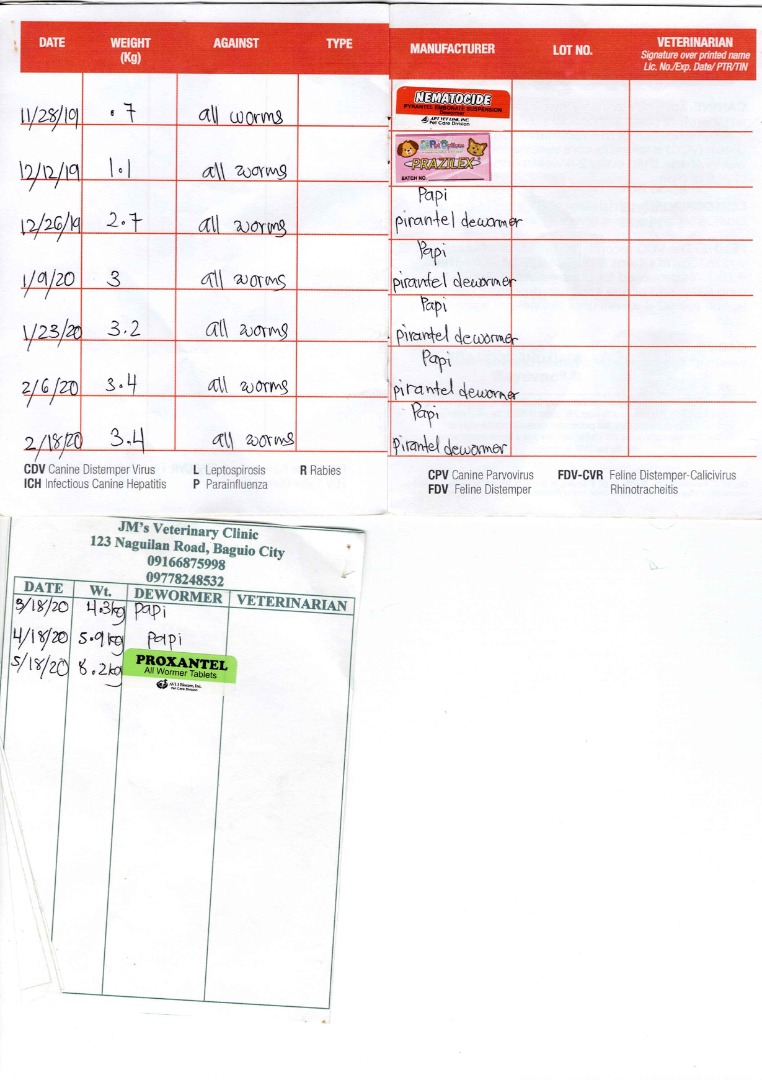 DATE WEIGHT (Kg) AGAINST TYPE MANUFACTURER LOT NO. VETERINARIAN
Signature over printed name
Lic. No./Exp. Date/ PTR/TIN
11/28/19 .7 all worms NEMATOCIDE
PYRANTEL EMBONATE SUSPENSION
Dewormer
Pet Care Division
12/12/19 1.1 all worms PRAZILEX
BATCH NO.
12/26/19 2.7 all worms Papi
pirantel dewormer
1/9/20 3 all worms Papi
pirantel dewormer
1/23/20 3.2 all worms Papi
pirantel dewormer
2/6/20 3.4 all worms Papi
pirantel dewormer
2/18/20 3.4 all worms Papi
pirantel dewormer
CDV Canine Distemper Virus L Leptospirosis R Rabies
ICH Infectious Canine Hepatitis P Parainfluenza
CPV Canine Parvovirus FDV-CVR Feline Distemper-Calicivirus
FDV Feline Distemper Rhinotracheitis
JM's Veterinary Clinic
123 Naguilan Road, Baguio City
09166875998
09778248532
DATE Wt. DEWORMER VETERINARIAN
3/18/20 4.3kg papi
4/18/20 5.9kg papi
5/18/20 8.2kg PROXANTEL
All Wormer Tablets
Pet Care Division